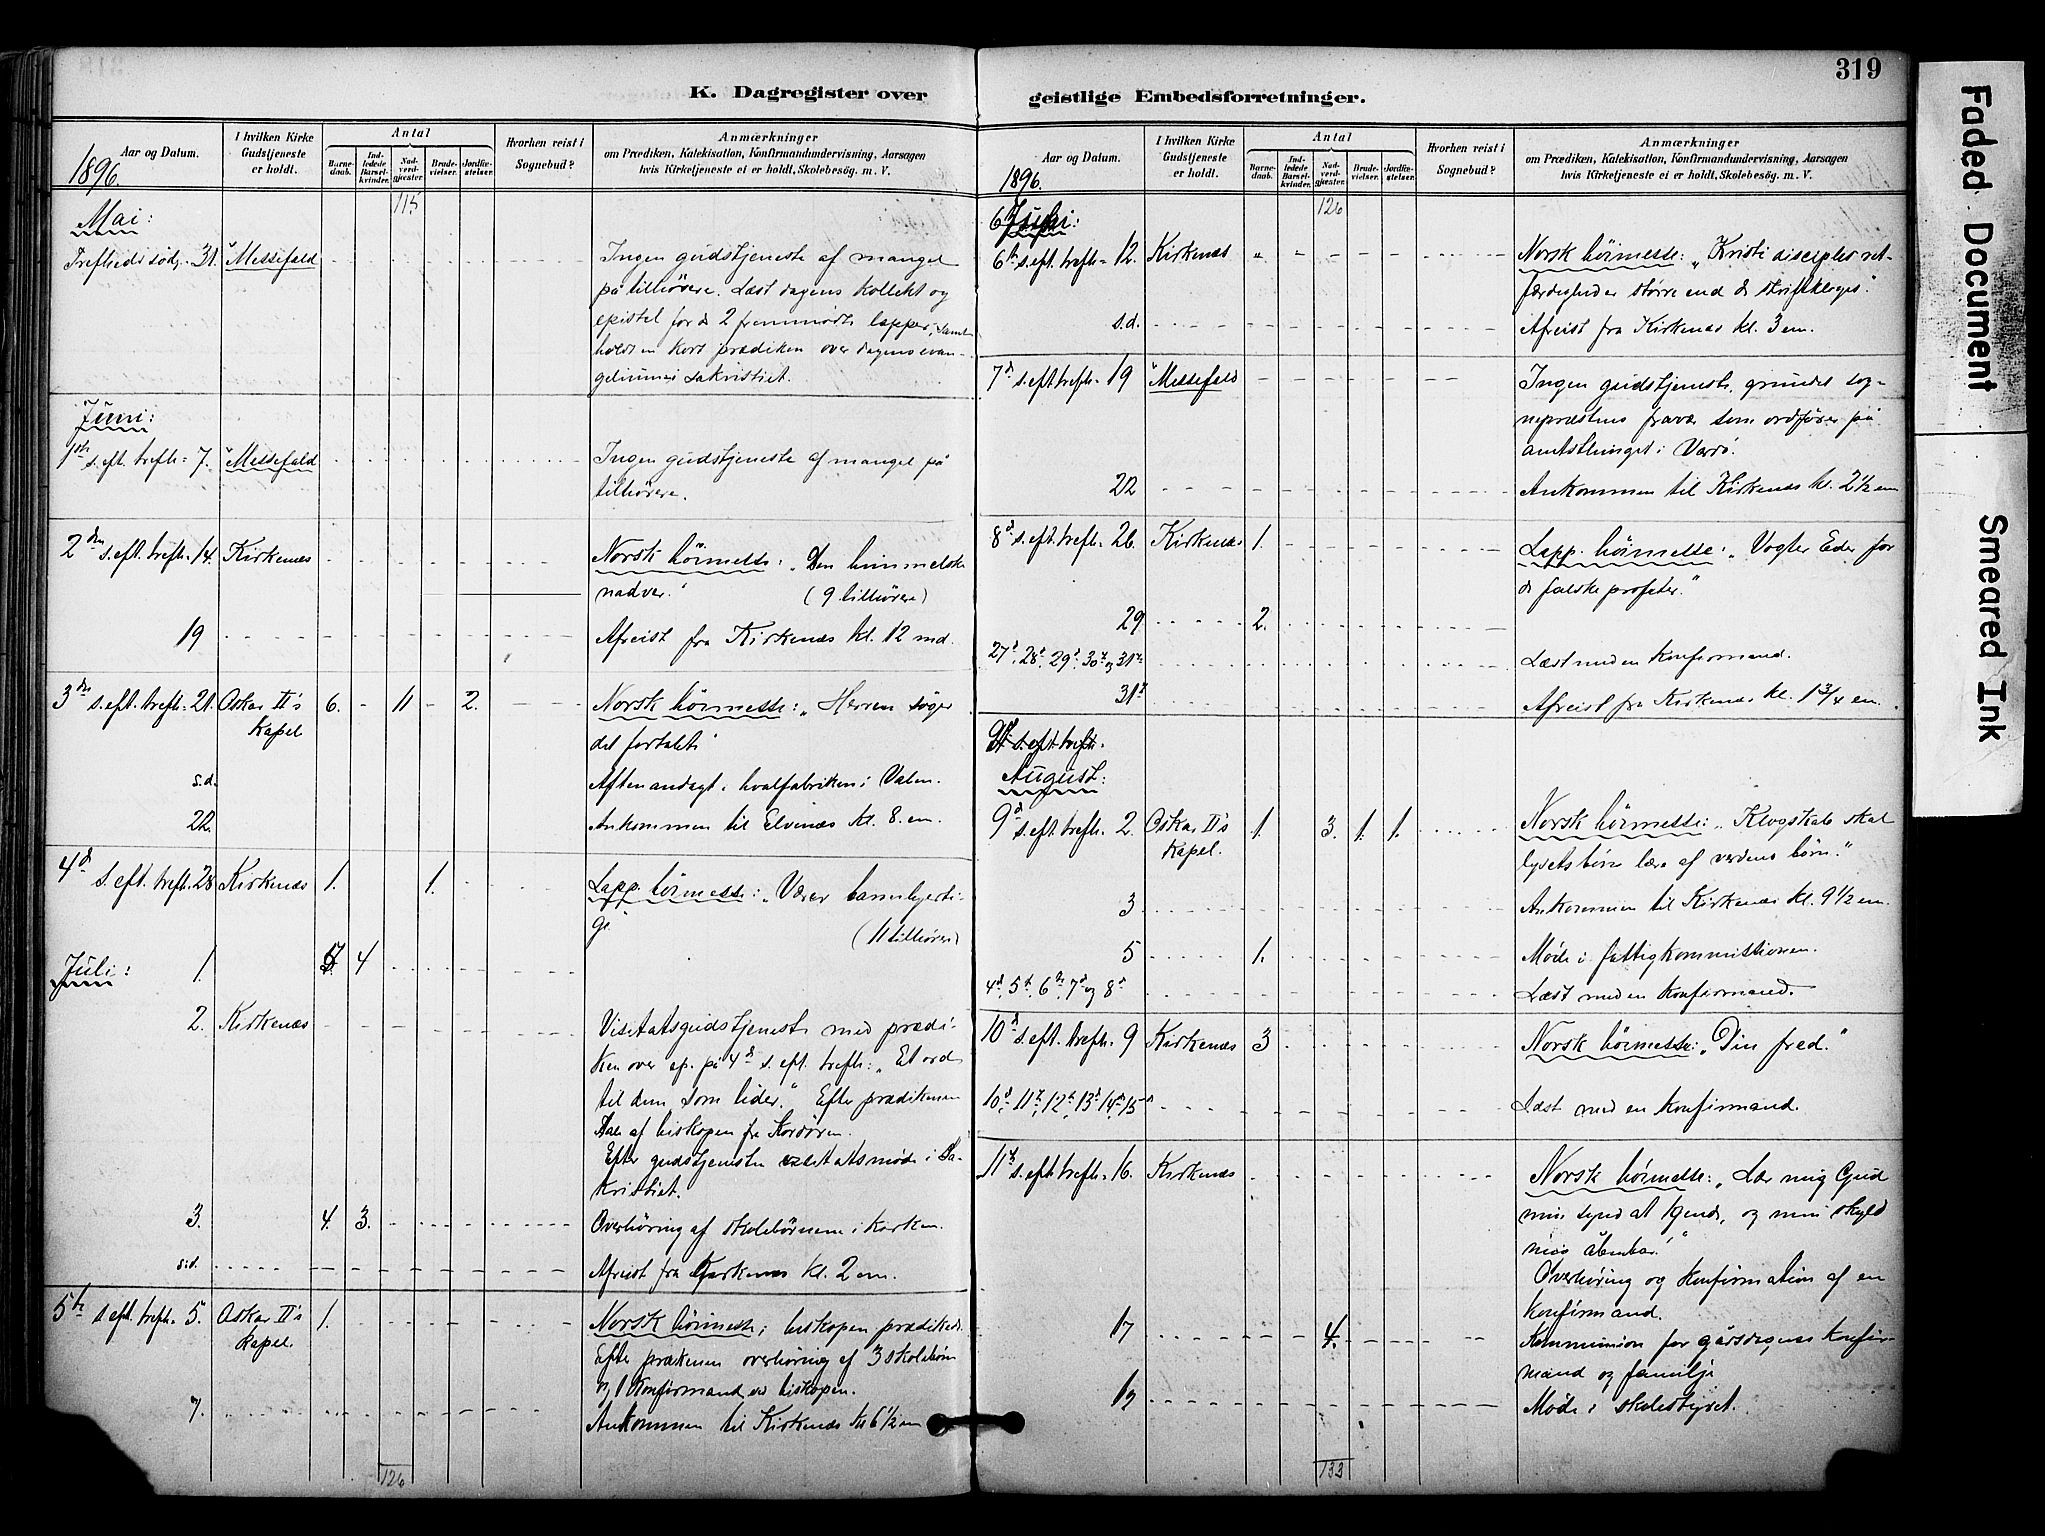 319
K. Dagregister over
geistlige Embedsforretninger.
Aar og Datum.
1896.
I hvilken Kirke Gudstjeneste er holdt.
Antal
Barne-daab.
Ind-ledede Barsel-kvinder.
Nad-verd-gjæster.
Brude-vielser.
Jordfæ-stelser.
Hvorhen reist i Sognebud?
Anmærkninger
om Prædiken, Katekisation, Konfirmandundervisning, Aarsagen
hvis Kirketjeneste ei er holdt, Skolebesøg. m. V.
115
Mai:
Trefheds sød. 31. "Messefald Ingen gudstjeneste af mangel
på tilhørere. Læst dagens kollekt og
epistel for de 2 fremmødte lapper, samt
holdt en kort prædiken over dagens evan-
gelium i sakristiet.
Juni:
1ste s. eft. trefh. 7. "Messefald Ingen gudstjeneste af mangel på
tilhørere.
2den s. eft. trefh. 14. Kirkenæs Norsk høimesse: „Den himmelske
nadver." (9 tilhørere)
19 Afreist fra Kirkenæs kl. 12 md.
3die s. eft. trefh. 21. Oskar II's 6. - 11 - 2. Norsk høimesse: „Herren søger
Kapel det fortabte"
s.d. Aftenandagt i hvalfabriken i Valen.
22. Ankommen til Elvenæs kl. 8. em.
4d s. eft. trefh. 28 Kirkenæs 1. 1. Lapp. høimesse: „Værer barmhjerti-
ge" (11 tilhørere)
Juli: 1. 4
2. Kirkenæs Visitatsgudstjeneste med prædi-
ken over ep. på 4d s. eft. trefh: „Et ord
til dem som lider." Efter prædikenen
Tale af biskopen fra Kordøren.
Efter gudstjenesten visitatsmøde i Sa-
kristiet.
3. 4. 3. Overhøring af skolebørnene i kirken.
s.d. Afreist fra Kirkenæs kl. 2 em.
5te s. eft. trefh. 5. Oskar II's 1. Norsk høimesse; biskopen prædikede.
Kapel. Efter prækenen overhøring af 3 skolebørn
og 1 konfirmand ved biskopen.
7. Ankommen til Kirkenæs kl 6 1/2 em
126
Aar og Datum.
1896.
I hvilken Kirke Gudstjeneste er holdt.
Antal
Barne-daab.
Ind-ledede Barsel-kvinder.
Nad-verd-gjæster.
Brude-vielser.
Jordfæ-stelser.
Hvorhen reist i Sognebud?
Anmærkninger
om Prædiken, Katekisation, Konfirmandundervisning, Aarsagen
hvis Kirketjeneste ei er holdt, Skolebesøg. m. V.
126
Juli:
6te s. eft. trefh. 12. Kirkenæs Norsk høimesse: „Kristi disciples ret-
færdighed er større end de skriftkloges."
s.d. Afreist fra Kirkenæs kl. 3 em.
7d s. eft trefh. 19 "Messefald Ingen gudstjeneste, grundet sog-
nepræstens fravær som ordfører på
amtsthinget i Vardø.
22 Ankommen til Kirkenæs kl. 2 1/2 em
8d s. eft. trefh. 26. Kirkenæs 1. Lapp. høimesse: „Vogter Eder for
de falske profeter."
29 2.
27d, 28d, 29d, 30te og 31te Læst med en konfirmand.
31te Afreist fra Kirkenæs kl. 1 3/4 em.
9d s. eft. trefh.
August:
9d s. eft trefh. 2. Oskar II's 1. 3. 1. 1. Norsk høimesse: „Klogskab skal
Kapel. lysets børn lære af verdens børn."
3 Ankommen til Kirkenæs kl. 9 1/2 em.
5 1. Møde i fattigkommissionen.
4d, 5te, 6te, 7d og 8d Læst med en konfirmand.
10d s. eft. trefh. 9 Kirkenæs 3 Norsk høimesse: „Din fred."
10d, 11te, 12te, 13d, 14d, 15d Læst med en konfirmand.
11te s. eft trefh. 16. Kirkenæs Norsk høimesse: „Lær mig Gud
min synd at kjende, og min skyld
mig åbenbar!"
Overhøring og konfirmation af en
konfirmand.
17 4. Kommunion for gårsdagens konfir-
mand og familje
19 Møde i skolestyret.
133
Faded Document
Smeared Ink